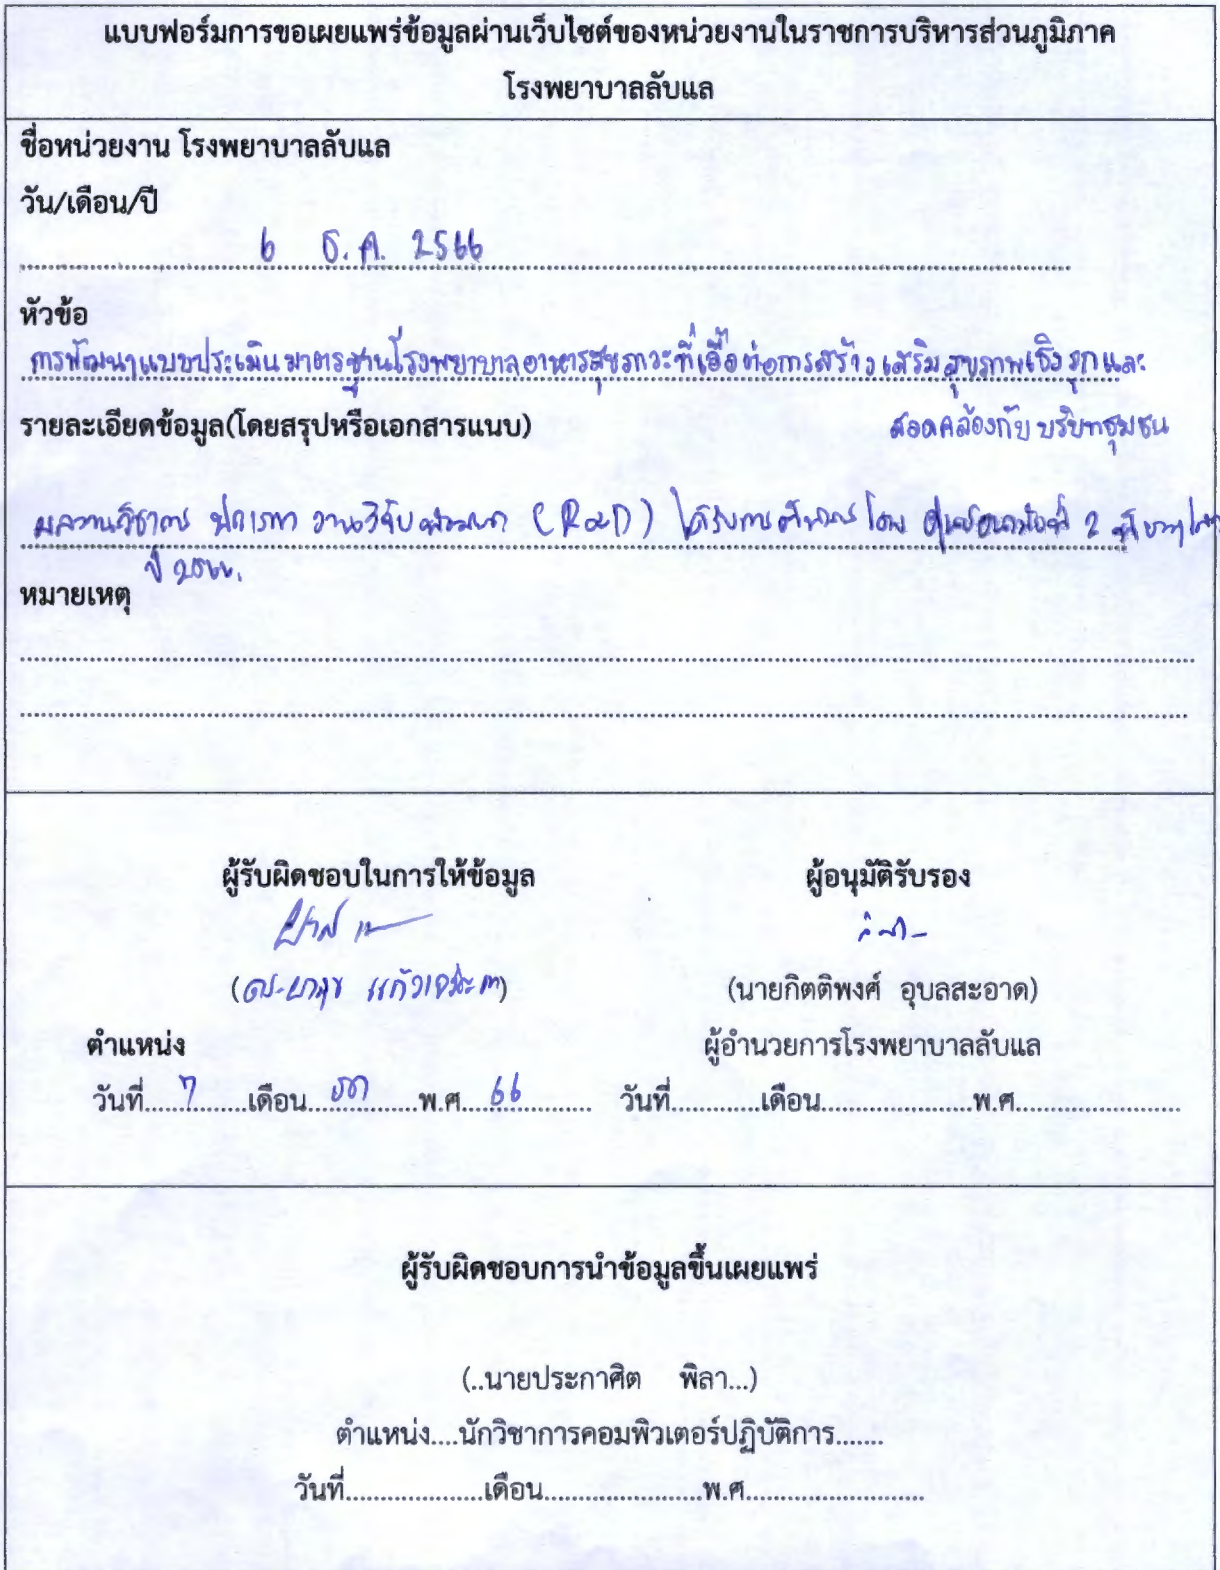 แบบฟอร์มการขอเผยแพร่ข้อมูลผ่านเว็บไซต์ของหน่วยงานในราชการบริหารส่วนภูมิภาค
โรงพยาบาลลับแล
ชื่อหน่วยงาน โรงพยาบาลลับแล
วัน/เดือน/ปี
6 ธ.ค. 2566
หัวข้อ
การพัฒนาแบบประเมินมาตรฐานโรงพยาบาลอาหารสุขภาวะที่เอื้อต่อการสร้างเสริมสุขภาพเชิงรุกและ
สอดคล้องกับบริบทชุมชน
รายละเอียดข้อมูล(โดยสรุปหรือเอกสารแนบ)
ผลงานวิชาการ ประเภท งานวิจัยพัฒนา (R&D) ได้รับการ โดย ศูนย์อนามัยที่ 2
ปี 2566.
หมายเหตุ
ผู้รับผิดชอบในการให้ข้อมูล ผู้อนุมัติรับรอง
(นายกิตติพงศ์ อุบลสะอาด)
ตำแหน่ง ผู้อำนวยการโรงพยาบาลลับแล
วันที่.....7.....เดือน.....ธค.....พ.ศ.....66..... วันที่.............เดือน......................พ.ศ........................
ผู้รับผิดชอบการนำข้อมูลขึ้นเผยแพร่
(..นายประกาศิต พิลา...)
ตำแหน่ง....นักวิชาการคอมพิวเตอร์ปฏิบัติการ.......
วันที่....................เดือน.......................พ.ศ..........................